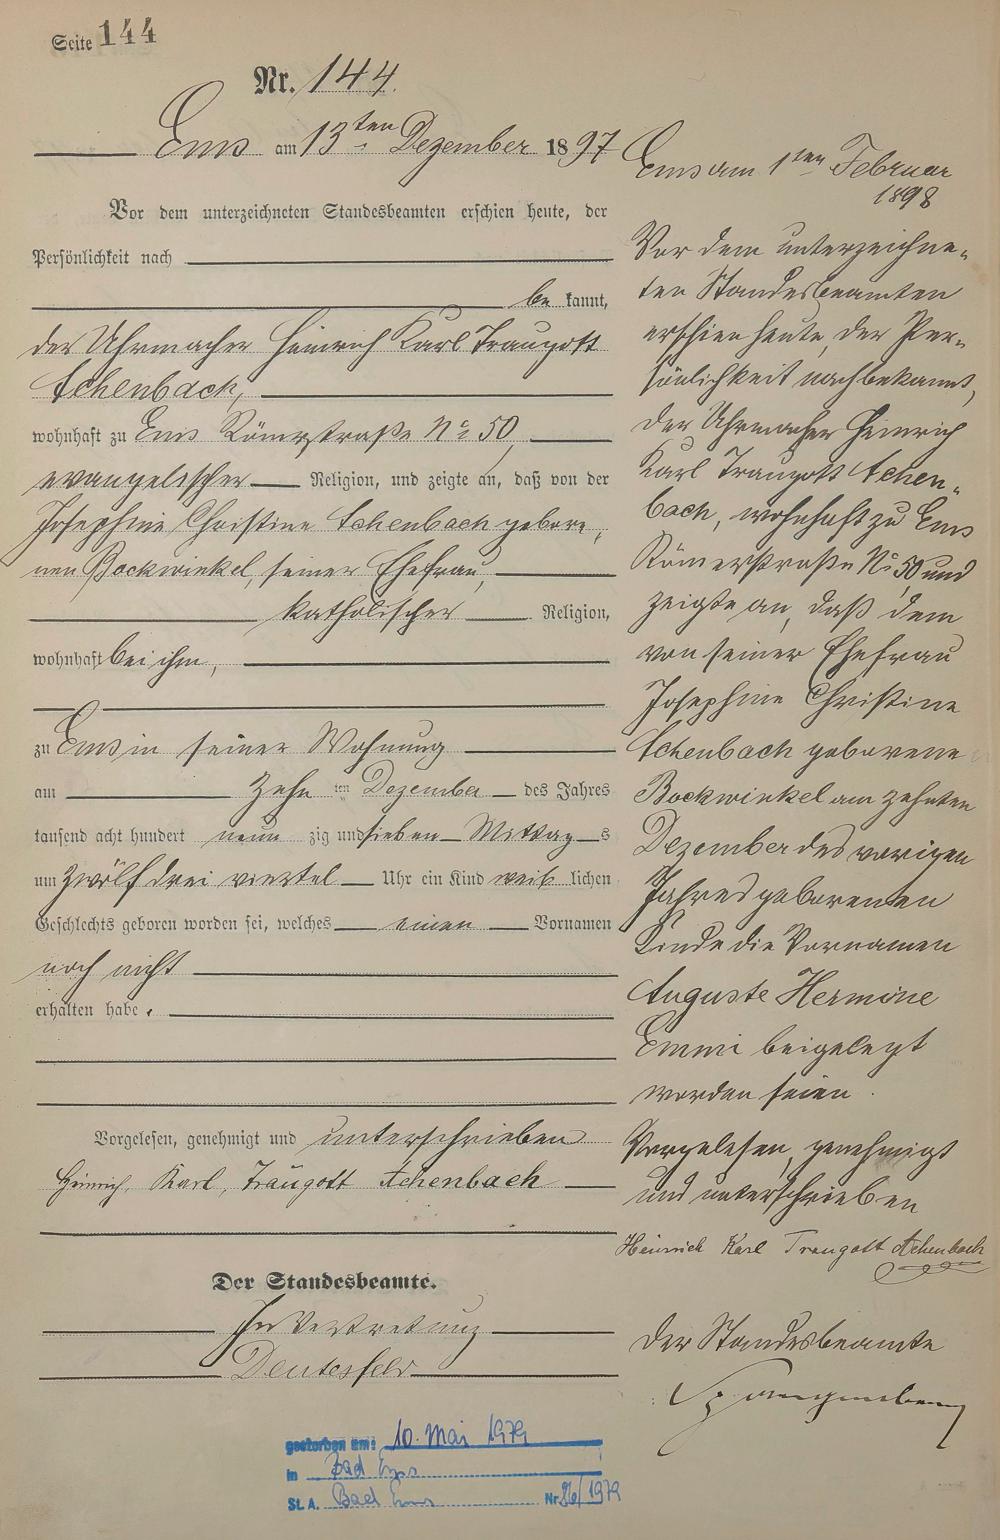 Seite 144
Nr. 144.
Ems am 13ten Dezember 1897
Vor dem unterzeichneten Standesbeamten erschien heute, der
Persönlichkeit nach
be kannt,
der Uhrmacher Heinrich Karl Traugott
Achenbach,
wohnhaft zu Ems Römerstraße No 50,
evangelischer Religion, und zeigte an, daß von der
Josephine Christine Achenbach gebore„
nen Bockwinkel, seiner Ehefrau,
katholischer Religion,
wohnhaft bei ihm,
zu Ems in seiner Wohnung
am zehn ten Dezember des Jahres
tausend acht hundert neun zig und sieben Mittag s
um zwölf drei viertel Uhr ein Kind weib lichen
Geschlechts geboren worden sei, welches einen Vornamen
noch nicht
erhalten habe.
Vorgelesen, genehmigt und unterschrieben
Heinrich, Karl, Traugott Achenbach
Der Standesbeamte.
In Vertretung
Deutesfeld
gestorben am: 10. Mai 1979
in Bad Ems
St. A. Bad Ems Nr. 86/1979
Ems am 1ten Februar
1898
Vor dem unterzeichne„
ten Standesbeamten
erschien heute, der Per„
sönlichkeit nach bekannt,
der Uhrmacher Heinrich
Karl Traugott Achen„
bach, wohnhaft zu Ems
Römerstraße No 50, und
zeigte an, daß dem
von seiner Ehefrau
Josephine Christine
Achenbach geborene
Bockwinkel am zehnten
Dezember des vorigen
Jahres geborenen
Kinde die Vornamen
Auguste Hermine
Emmi beigelegt
worden seien.
Vorgelesen, genehmigt
und unterschrieben
Heinrich Karl Traugott Achenbach
Der Standesbeamte